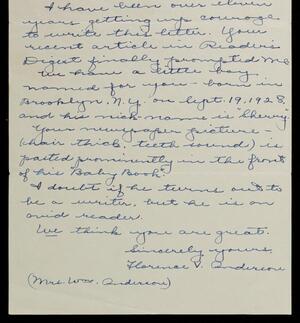 I have been over eleven
years getting up courage
to write this letter. Your
recent article in Reader's
Digest finally prompted me.
We have a little boy
named for you - born in
Brooklyn, N.Y. on Sept. 19, 1928,
and his nick name is
Your newspaper picture -
(hair thick, teeth sound) is
pasted prominently in the front
of his Baby Book.
I doubt if he turns out to
be a writer, but he is an
avid reader.
We think you are great.
Sincerely yours,
Florence V. Anderson
(Mrs. Wm. Anderson)